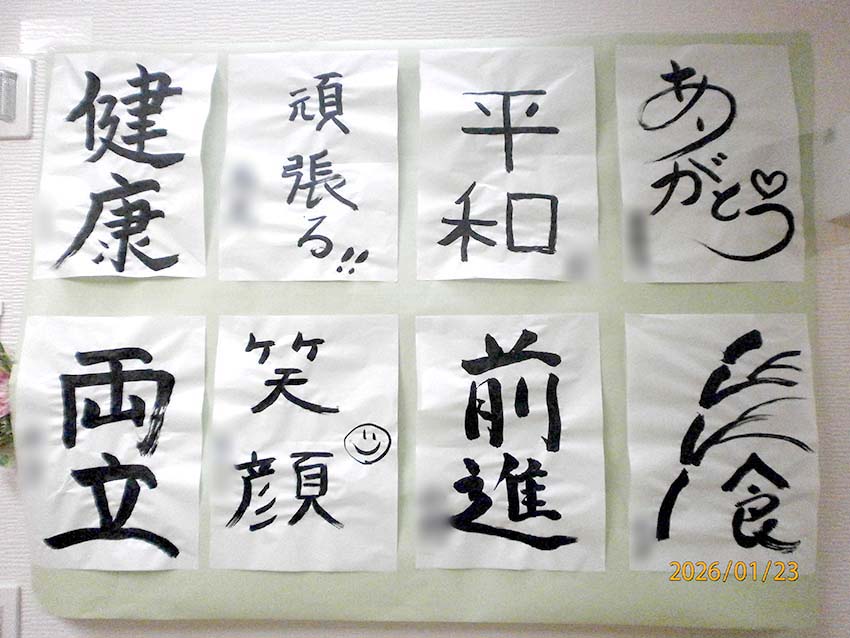 健康
頑張る!!
平和
ありがとう♡
両立
笑顔
前進
食
2026/01/23